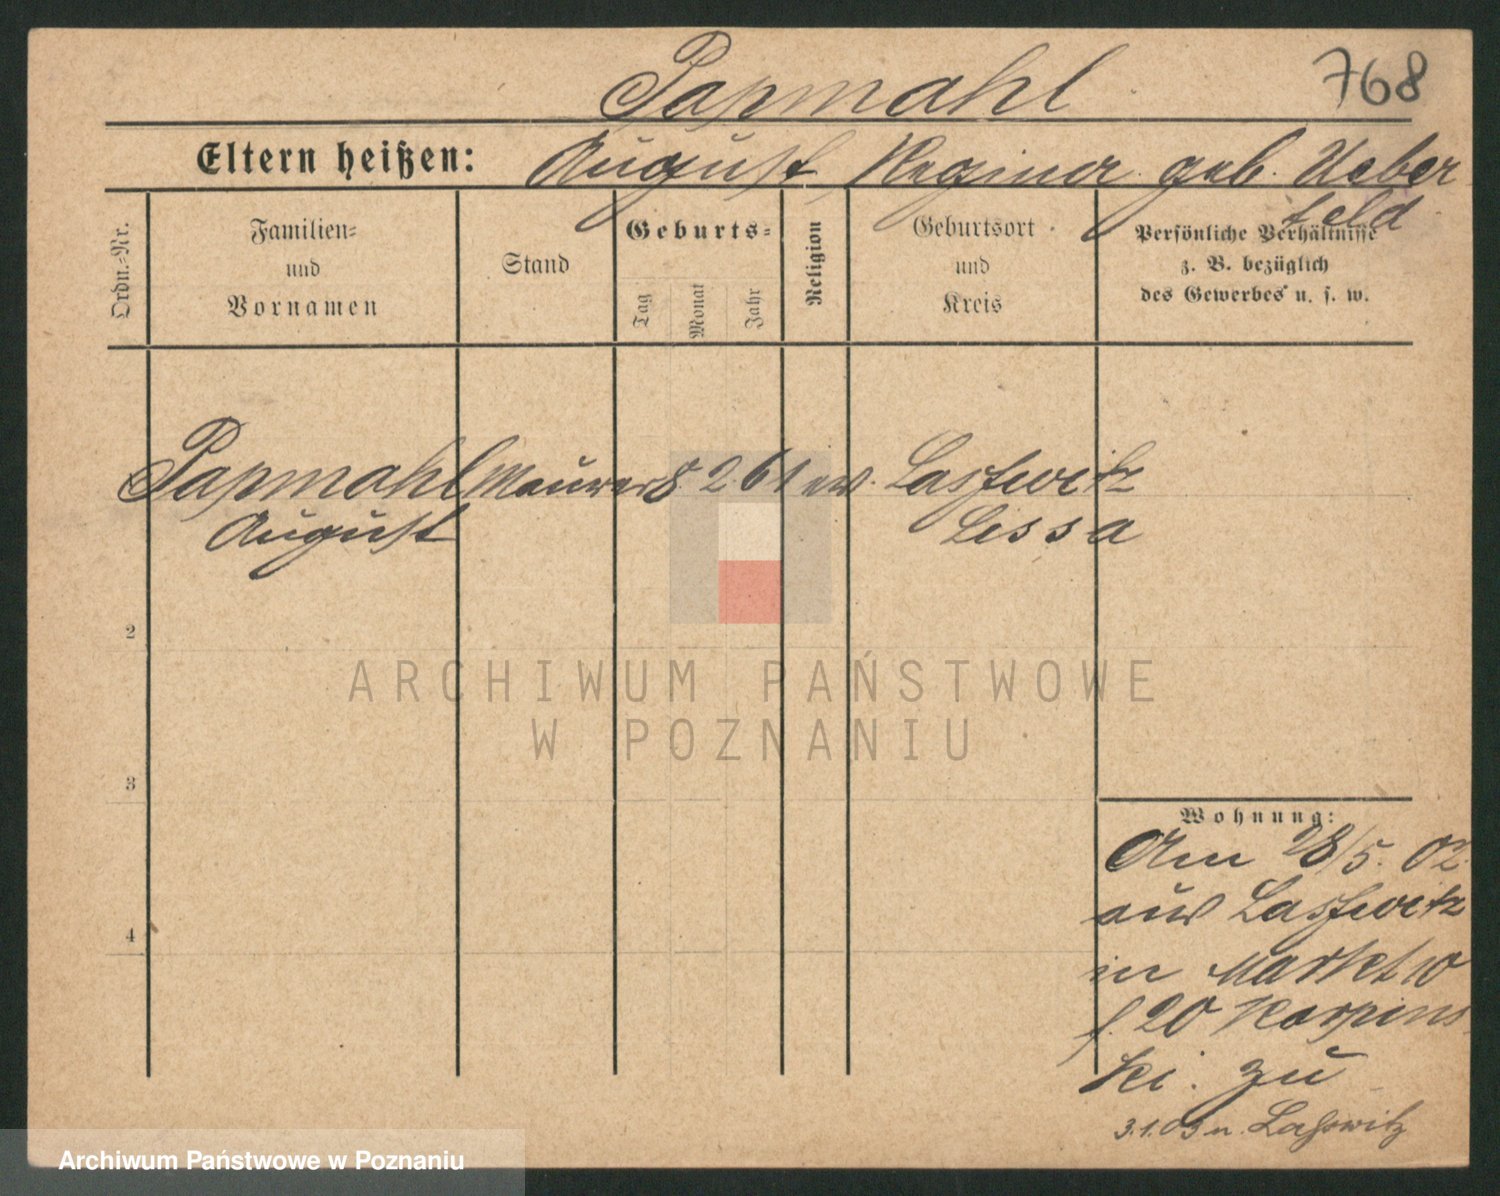 Papmahl 768
Eltern heißen: August Regina geb. Ueber
feld
Ordn.-Nr.
Familien-
und
Vornamen
Stand
Geburts-
Tag
Monat
Jahr
Religion
Geburtsort
und
Kreis
Persönliche Verhältnisse
z. B. bezüglich
des Gewerbes u. s. w.
Papmahl Maurer 8. 2. 61 ev. Lasswitz
August Lissa
2
3
4
Wohnung:
Am 28/5. 02
aus Lasswitz
in Markt 10
f. 20 Karpins
ki. zu
3.1.03 n. Lasswitz
ARCHIWUM PAŃSTWOWE
W POZNANIU
Archiwum Państwowe w Poznaniu